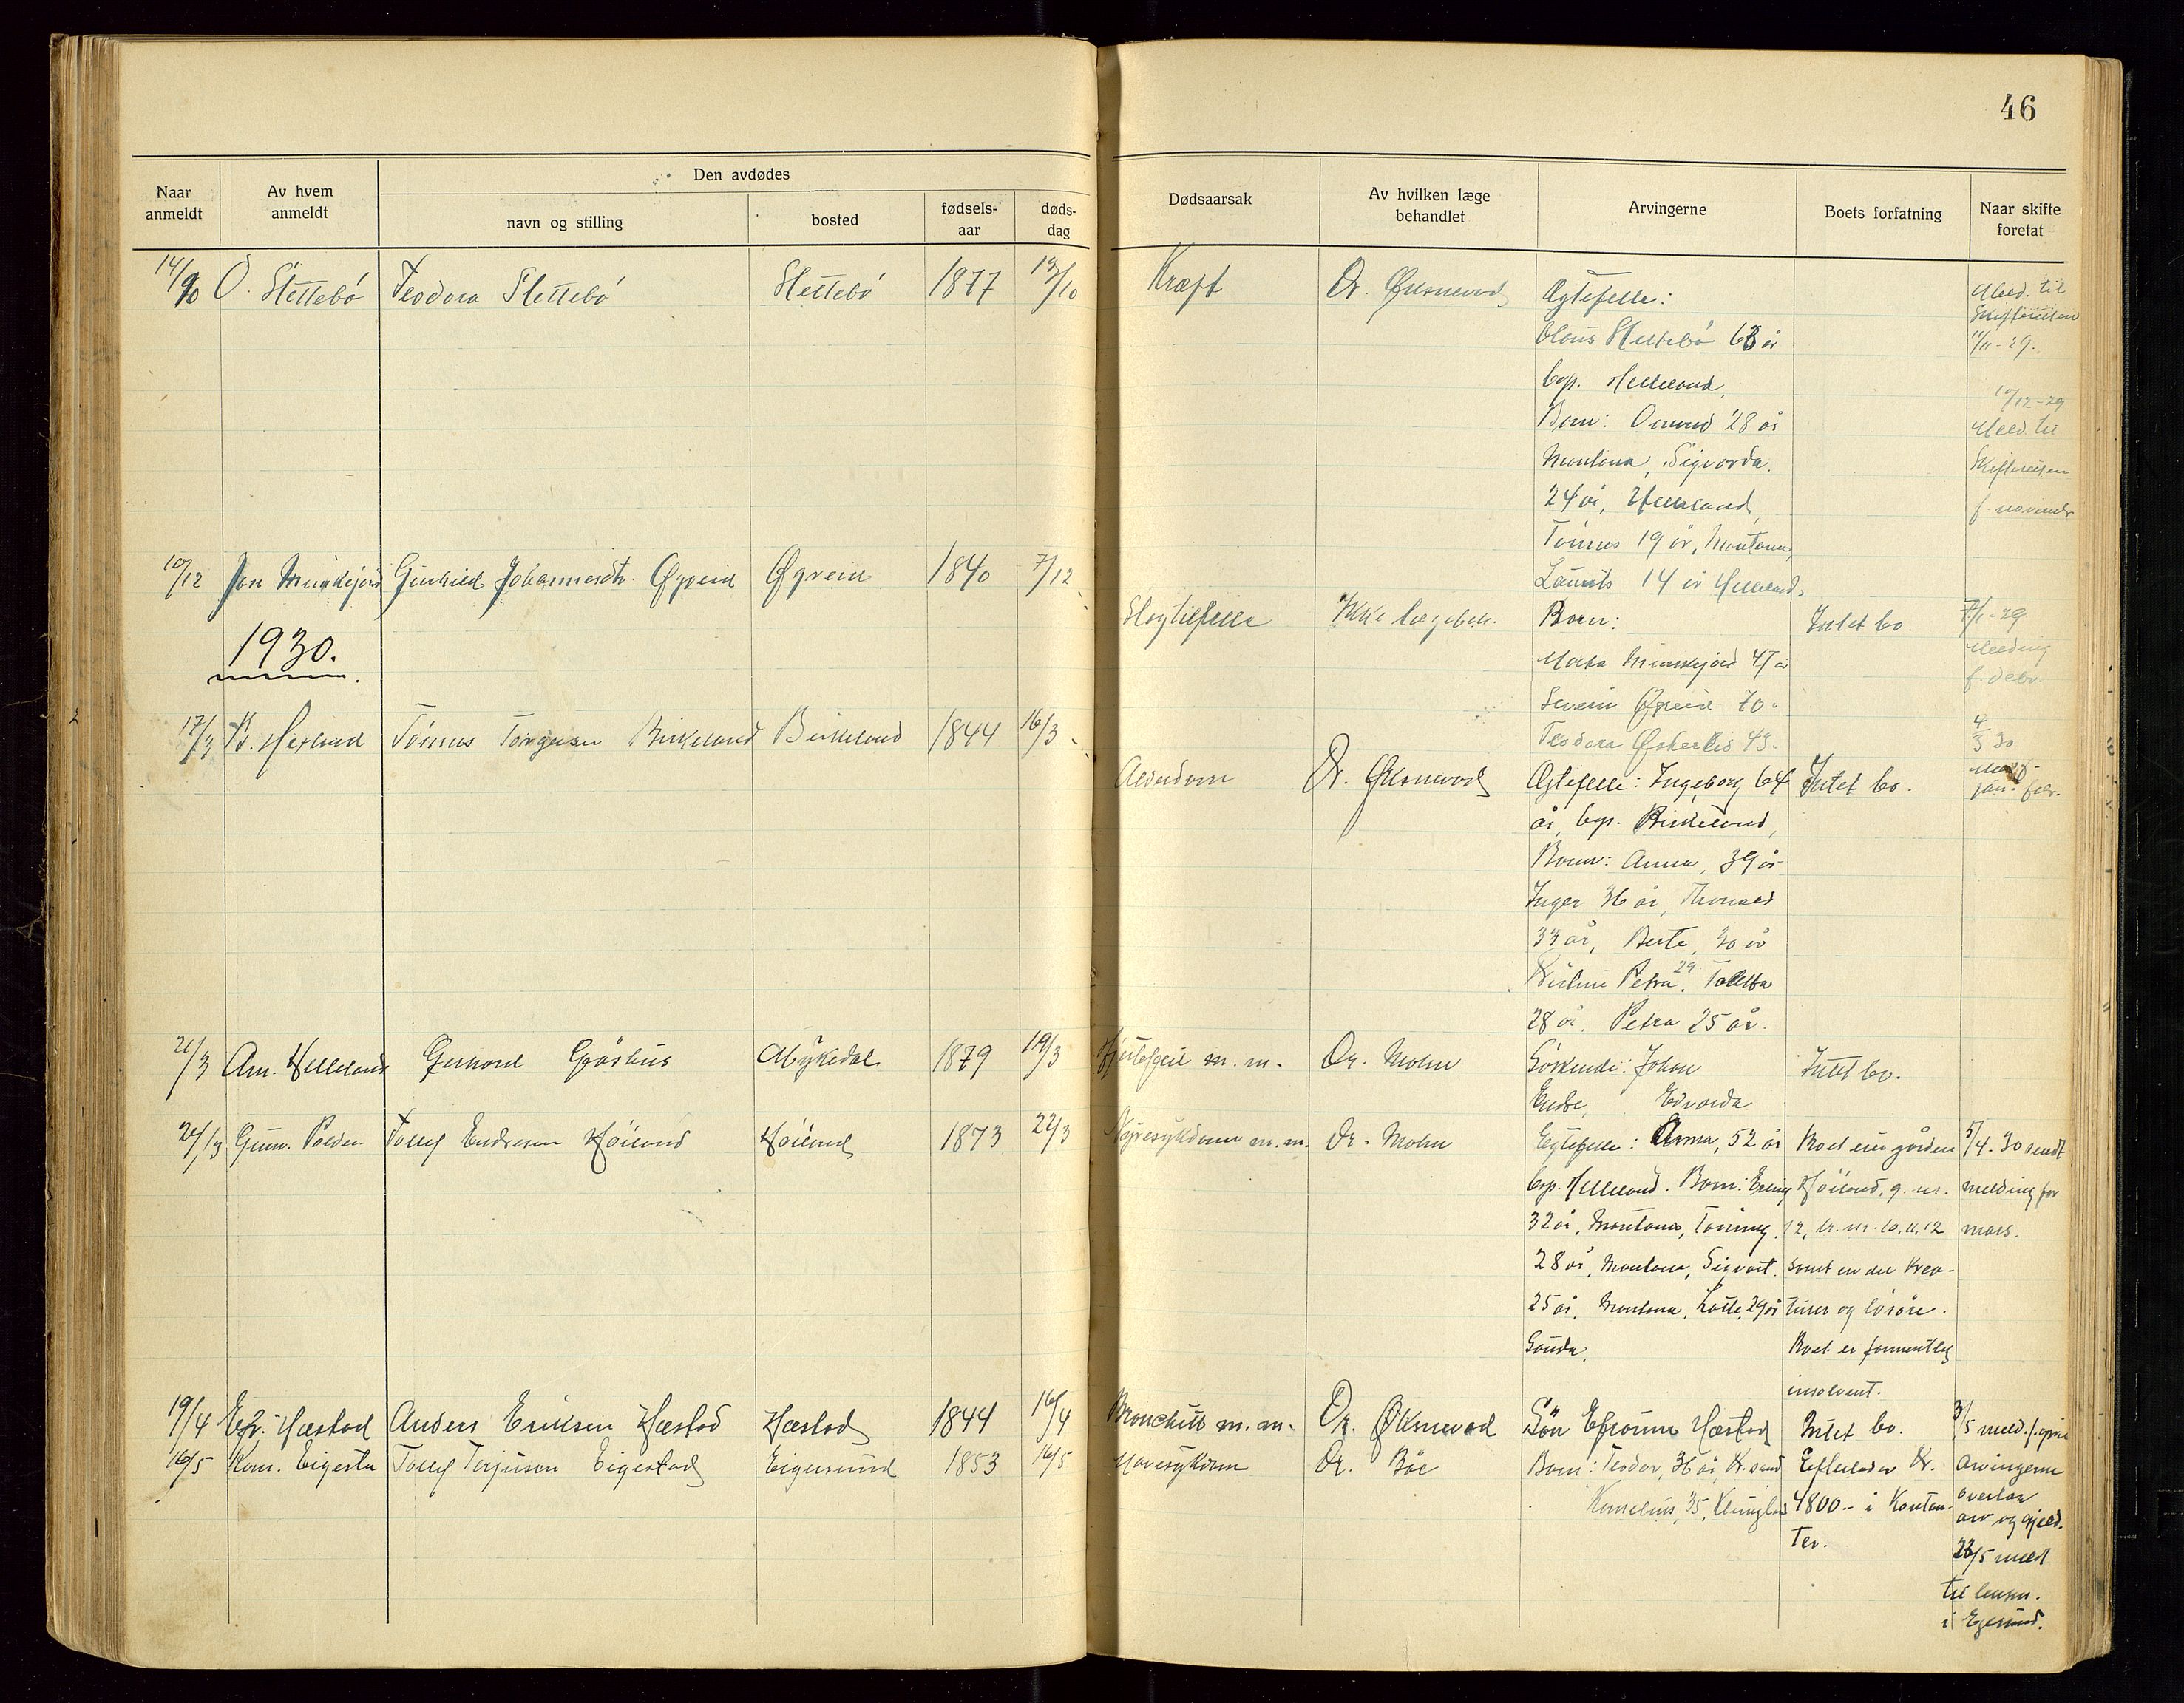 46
Naar anmeldt
Av hvem anmeldt
Den avdødes
navn og stilling
bosted
fødsels-aar
døds-dag
Dødsaarsak
Av hvilken læge behandlet
Arvingerne
Boets forfatning
Naar skifte foretat
14/10 O. Slettebö Teodora Slettebö Slettebö 1877 13/10 Kræft Dr. Øksnevad Ægtefelle:
Olaus Slettebö 63 år
bop. Helleland,
Born: Omund 28 år
Montana, Sigvarda
24 år, Helleland,
Tönnes 19 år, Montana,
Laurits 14 år Helleland.
Meld. til
Skifteretten
11/11-29.
10/12-29
Meld. til
Skifteretten
f. november
10/12 Jon Munkejord Gunhild Johannesdtr. Øgreid Øgreid 1840 7/12 Slagtilfelle Ikke lægebeh. Born: Intet bo. 7/1-29
Marta Munkejord 47 år
Severin Øgreid 70 -
Teodora 43 -
Melding
f. debr.
1930.
17/3 B. Hetland Tönnes Torgersen Birkeland Birkeland 1844 16/3 Alderdom Dr. Øksnevad Ægtefelle: Ingeborg 64 Intet bo.
år, bop. Birkeland,
Born: Anna, 39 år
Inger 36 år, Thomas
33 år, Berte, 30 år
Petra 29. Taletta
28 år. Petra 25 år.
4/3 30
jan. febr.
21/3 Am. Helleland Gerhard Gåshus Mykedal 1879 19/3 Hjertefeil m. m. Dr. Molne Söskende: Johan Intet bo.
Endre, Edvarda
24/3 Gunn. Tolly Endresen Höiland Höiland 1873 22/3 Nyresykdom m. m. Dr. Molne Egtefelle: Anna, 52 år
bop. Helleland. Born: Erling
32 år, Montana, Tönning
28 år, Montana, Sigvart
25 år, Montana, Lotte, 29 år
Gauda.
Boet eier gården
Höiland, g. nr.
12, br. nr. 10, 11, 12
samt en del krea-
turer og lösöre.
Boet er formentlig
insolvent.
5/4-30 sendt
melding for
mars.
19/4 Efr. Hæstad Anders Eriksen Hæstad Hæstad 1844 16/4 Bronchitis m. m. Dr. Øksnevad Sön Efraim Hæstad Intet bo. 3/5 meld. f. april
16/5 Korn. Eigesta Tolly Terjusen Eigestad Eigersund 1853 16/5 Mavesykdom Dr. Böe Born: Teodor, 36 år, Kr.sand
Kornelius, 35,
Efterlader Kr.
4800.- i kontan-
ter.
Arvingerne
overtar
arv og gjeld.
22/5 meldt
til lensm.
i Egersund.